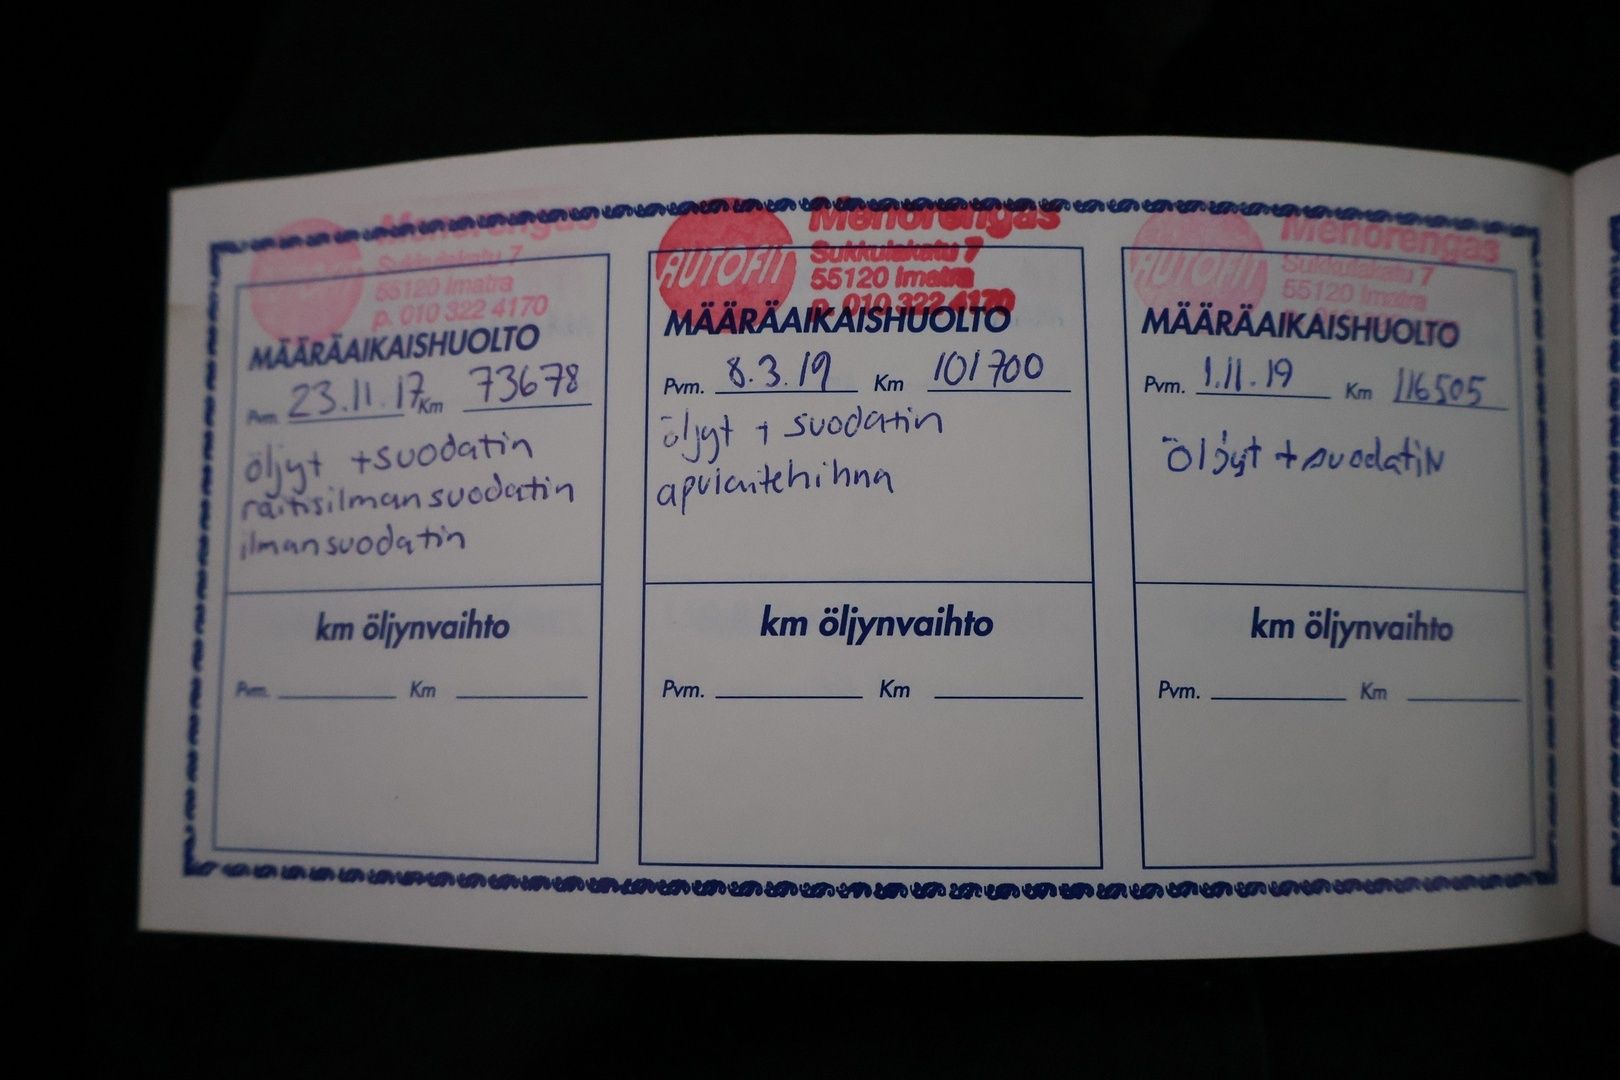 Menorengas
Sukkulakatu 7
55120 Imatra
p. 010 322 4170
MÄÄRÄAIKAISHUOLTO
Pvm. 23.11.17 Km 73678
öljyt + suodatin
raitisilmansuodatin
ilmansuodatin
km öljynvaihto
Pvm. Km
AUTOFIT
Menorengas
Sukkulakatu 7
55120 Imatra
p. 010 322 4170
MÄÄRÄAIKAISHUOLTO
Pvm. 8.3.19 Km 101700
öljyt + suodatin
apulaitehihna
km öljynvaihto
Pvm. Km
AUTOFIT
Menorengas
Sukkulakatu 7
55120 Imatra
MÄÄRÄAIKAISHUOLTO
Pvm. 1.11.19 Km 116505
öljyt + suodatin
km öljynvaihto
Pvm. Km